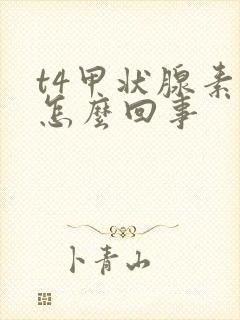 t4甲状腺素
怎麼回事
卜青山